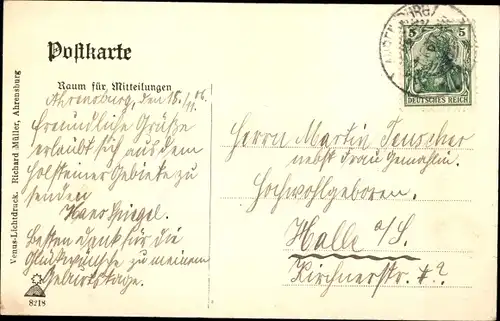 Postkarte
Raum für Mitteilungen
Ahrensburg, den 18./11. 06.
Freundliche Grüße
erlaubt sich aus dem
Holsteiner Gebiete zu
senden
Hans Spiegel.
Besten Dank für die
Glückwünsche zu meinem
Geburtstage.
Venus-Lichtdruck. Richard Müller, Ahrensburg
8218
5 5
DEUTSCHES REICH
Herrn Martin Teuscher
nebst Frau Gemahlin.
Hochwohlgeboren.
Halle a/S.
Kirchnerstr.